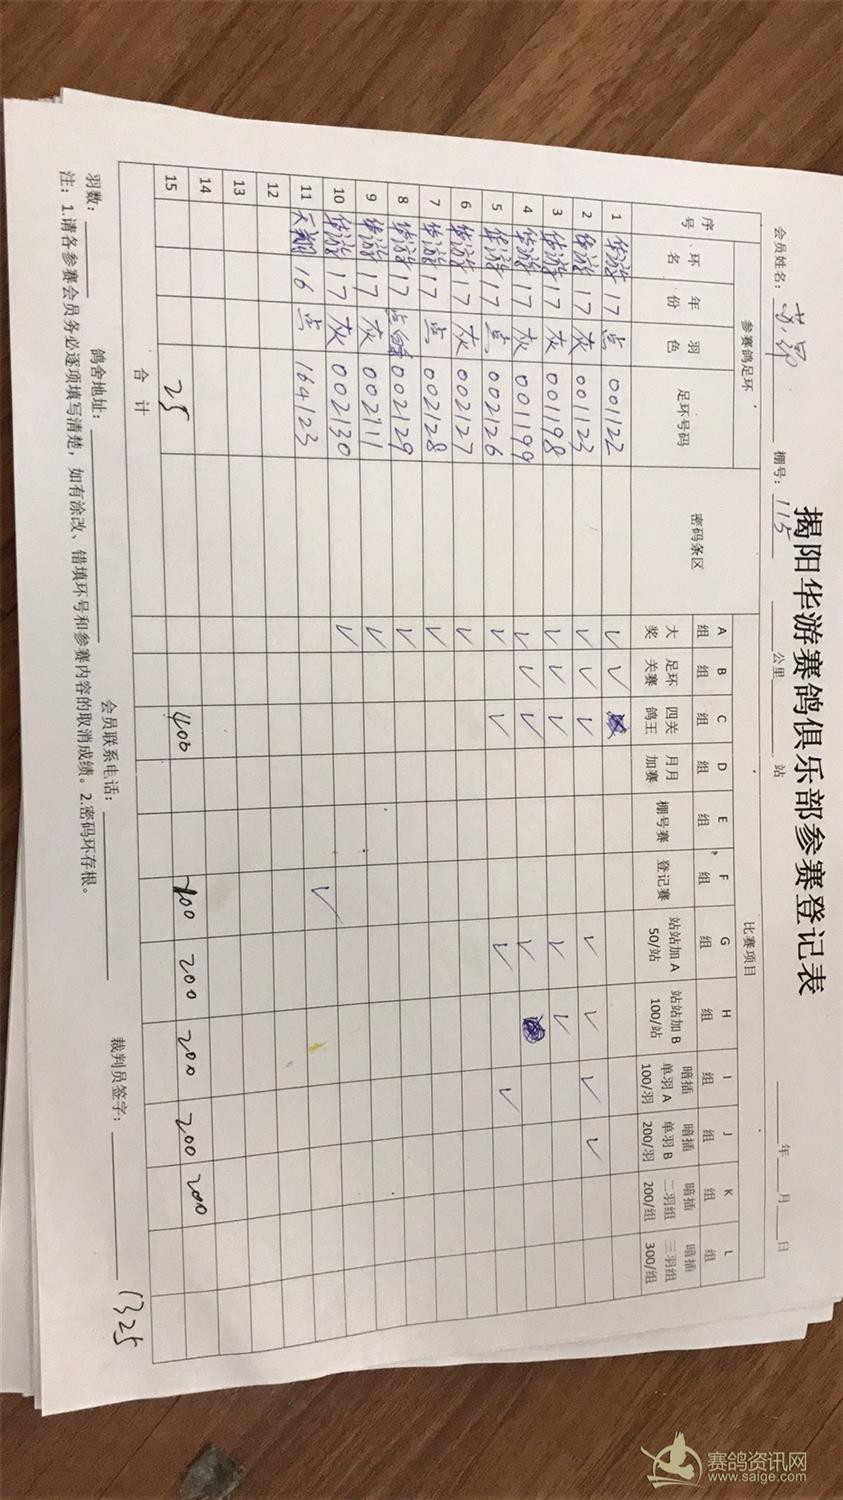 揭阳华游赛鸽俱乐部参赛登记表
会员姓名： 棚号：115 公里 站 年 月 日
序号 参赛鸽足环 密码条区 比赛项目
环名 年份 羽色 足环号码 A组 B组 C组 D组 E组 F组 G组 H组 I组 J组 K组 L组
大奖 足环关赛 四关鸽王 月月加赛 棚号赛 登记赛 站站加A 50/站 站站加B 100/站 暗插单羽A 100/羽 暗插单羽B 200/羽 暗插二羽组 200/组 暗插三羽组 300/组
1 华游 17 点 001122 √ √
2 华游 17 灰 001123 √ √ √ √ √ √ √
3 华游 17 灰 001198 √ √ √ √ √
4 华游 17 灰 001199 √ √ √ √
5 华游 17 点 002126 √ √ √ √
6 华游 17 灰 002127 √
7 华游 17 点 002128 √
8 华游 17 002129 √
9 华游 17 灰 002111 √
10 华游 17 灰 002130 √
11 天翔 16 点 164123 √
12
13
14
15 25 400 100 200 200 200 200
合计
羽数： 鸽舍地址： 会员联系电话： 裁判员签字： 1325
注：1.请各参赛会员务必逐项填写清楚，如有涂改、错填环号和参赛内容的取消成绩。2.密码环存根。
赛鸽资讯网
www.saige.com